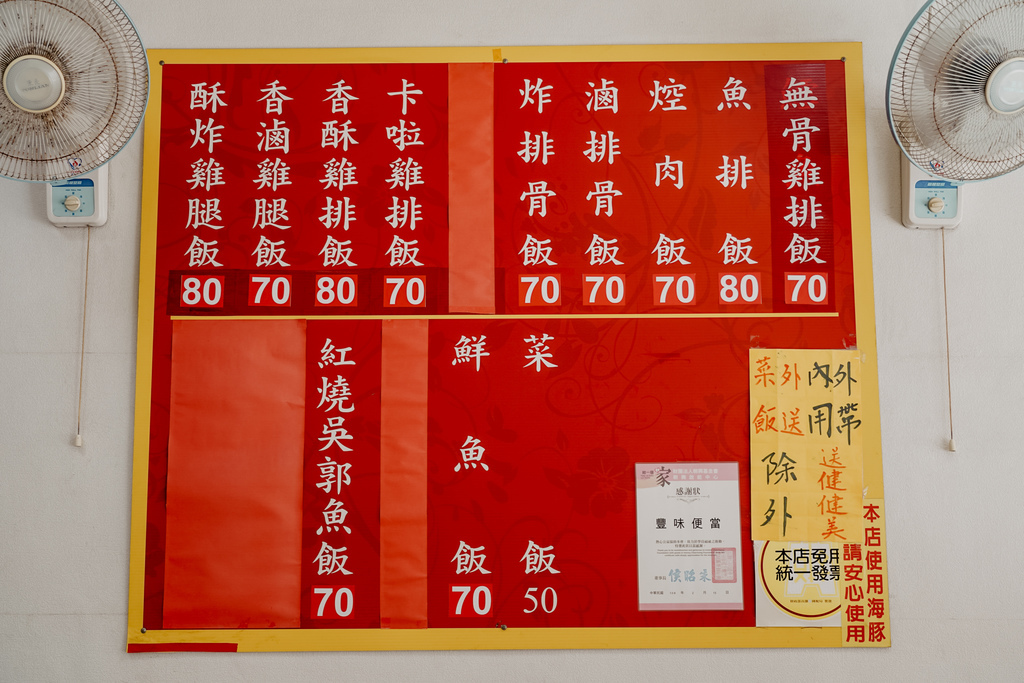 無骨雞排飯
70
魚排飯
80
焢肉飯
70
滷排骨飯
70
炸排骨飯
70
卡啦雞排飯
70
香酥雞排飯
80
香滷雞腿飯
70
酥炸雞腿飯
80
菜飯
50
鮮魚飯
70
紅燒吳郭魚飯
70
外帶
內用
送健健美
外送
菜飯
除外
感謝狀
豐味便當
本店免用
統一發票
本店使用海豚
請安心使用